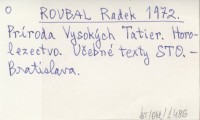 O
ROUBAL Radek 1972.
Príroda Vysokých Tatier. Horo-
lezectvo. Učebné texty STO. -
Bratislava.